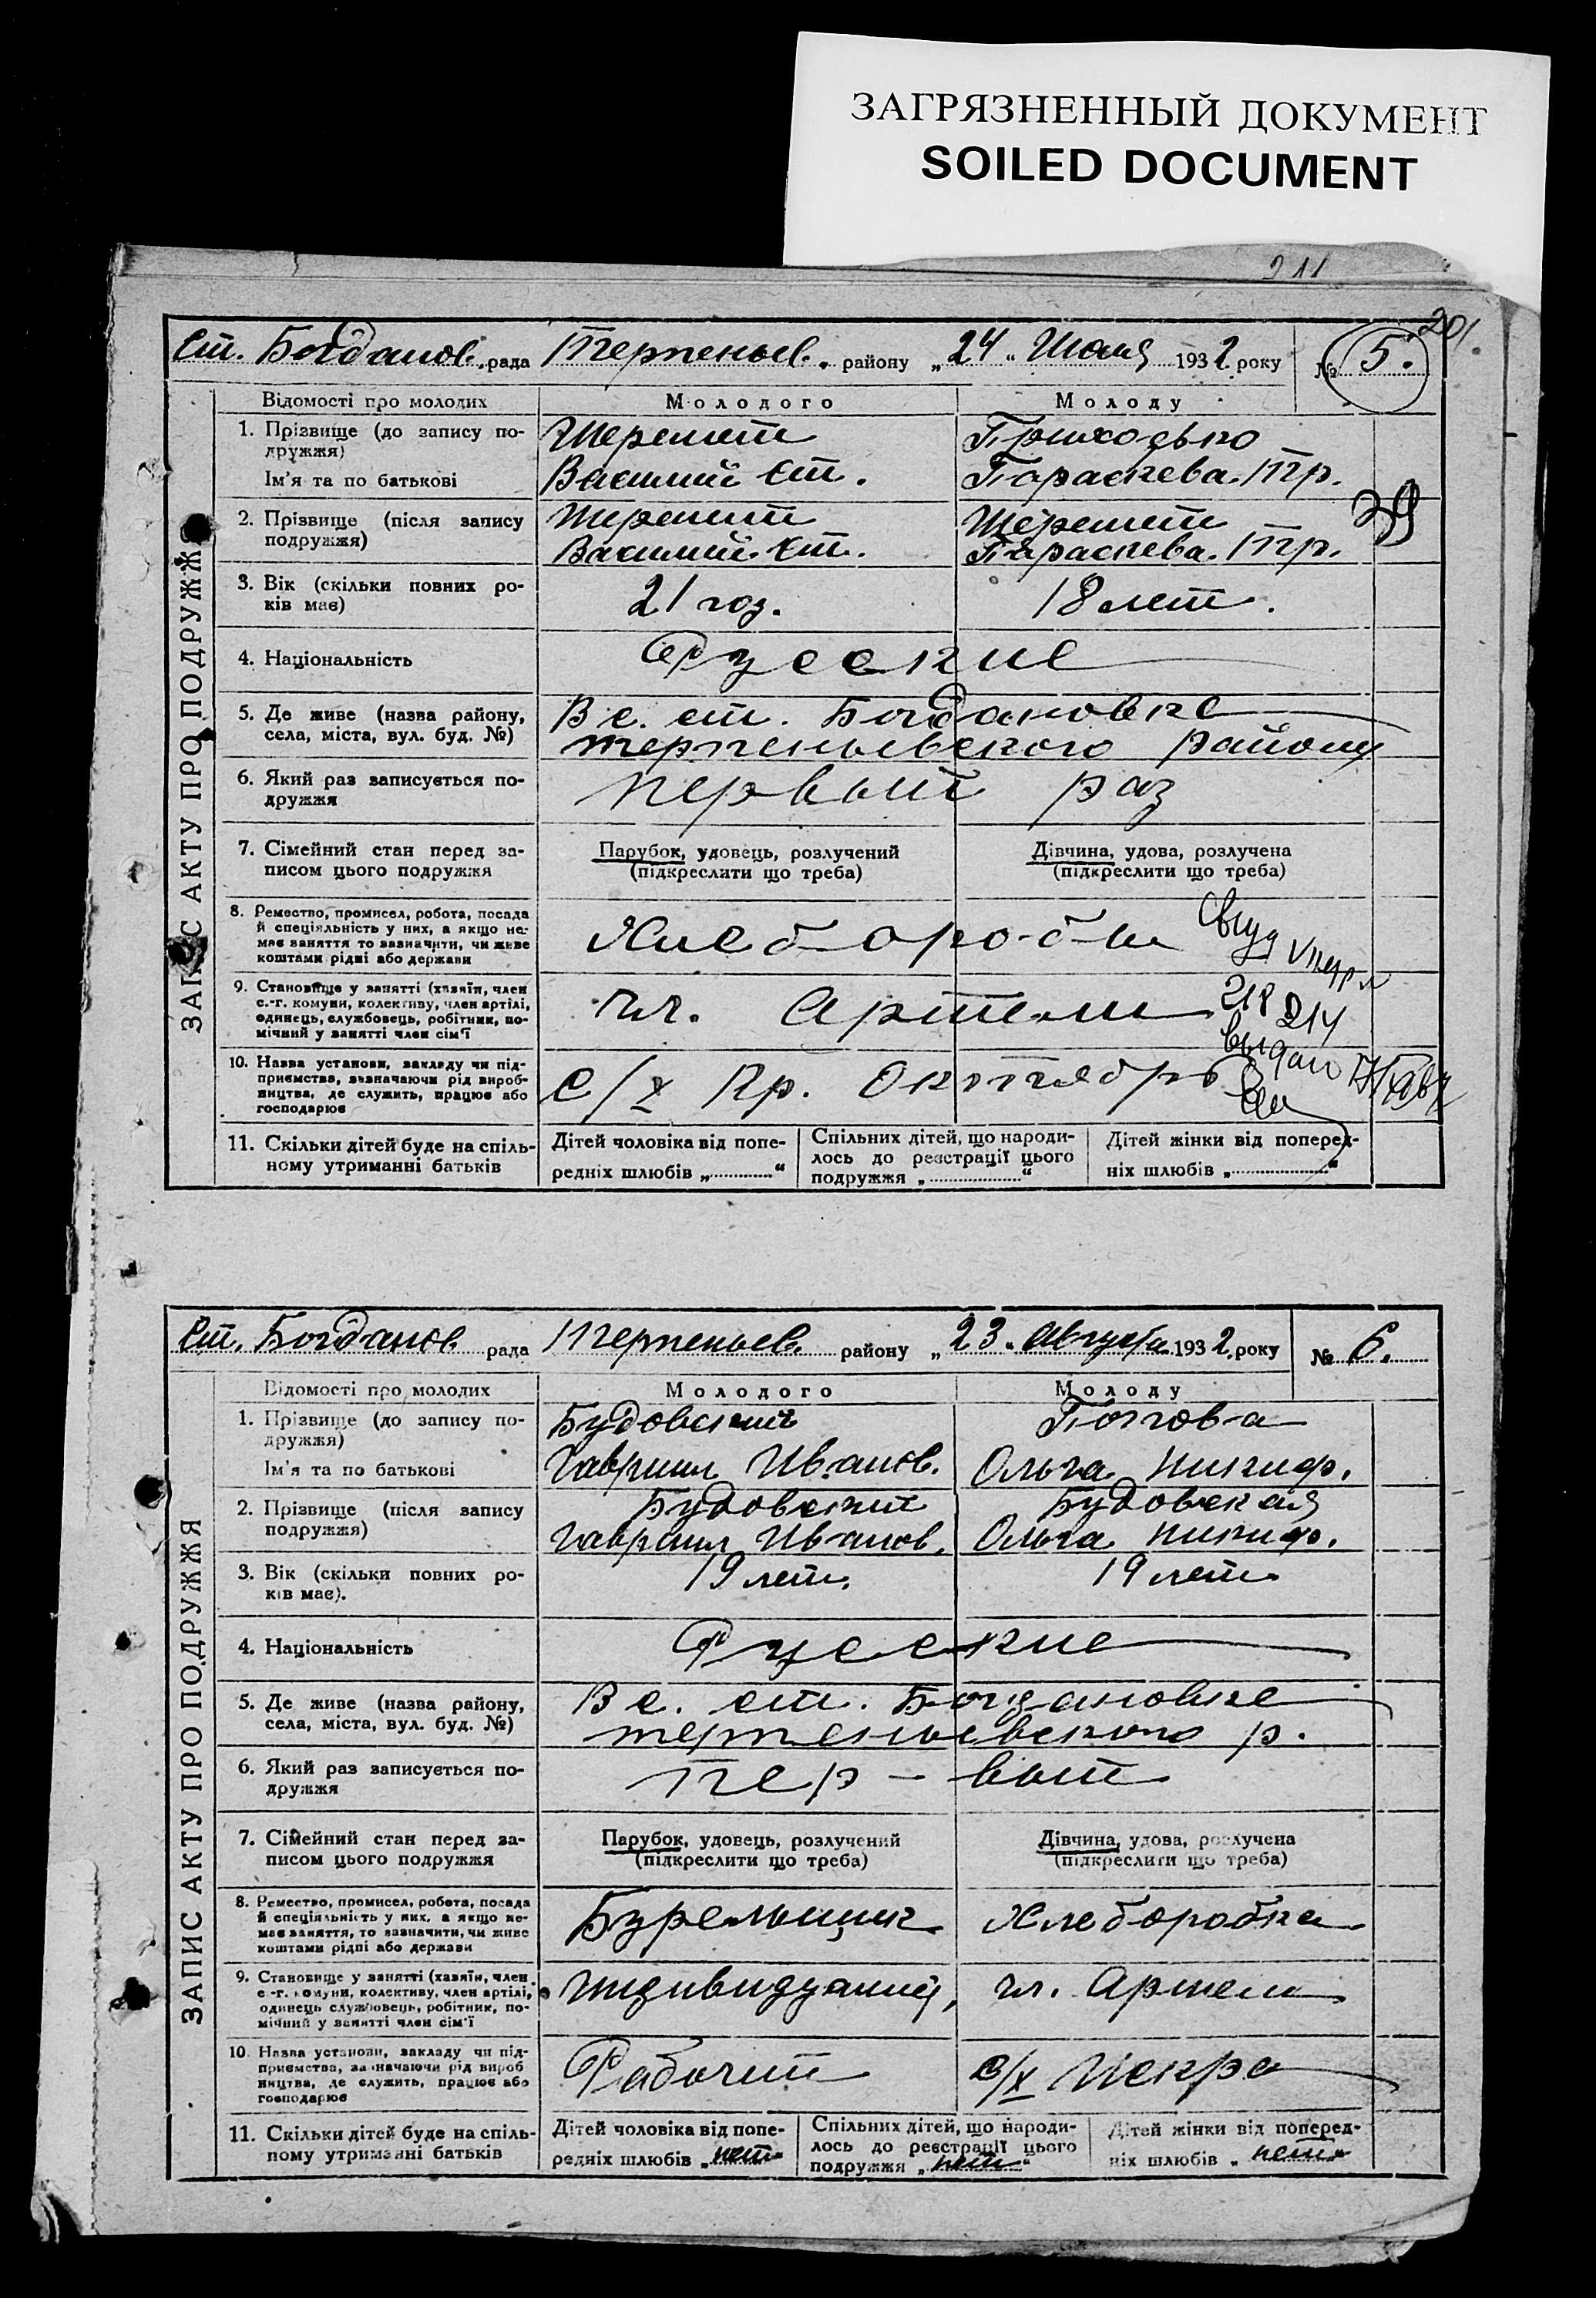 ЗАГРЯЗНЕННЫЙ ДОКУМЕНТ
SOILED DOCUMENT
211
201.
Ст. Богданов. рада Терпеньев. району „24„ Июля 1932 року № 5.
ЗАПИС АКТУ ПРО ПОДРУЖЖЯ
Відомості про молодих Молодого Молоду
1. Прізвище (до запису по-
дружжя)
Шеремет Приходько
Ім’я та по батькові Василий Ст. Параскева. Тр.
39
2. Прізвище (після запису
подружжя)
Шеремет Шеремет
Василий. Ст. Параскева. Тр.
3. Вік (скільки повних ро-
ків має)
21 год. 18 лет.
4. Національність Русские
5. Де живе (назва району,
села, міста, вул. буд. №)
В с. ст. Богдановке
терпеньевского району
6. Який раз записується по-
дружжя
первый раз
7. Сімейний стан перед за-
писом цього подружжя
Парубок, удовець, розлучений
(підкреслити що треба)
Дівчина, удова, розлучена
(підкреслити що треба)
8. Ремество, промисел, робота, посада
й спеціяльність у них, а якщо не-
має заняття то зазначити, чи живе
коштами рідні або держави
Хлеборобы
9. Становище у занятті (хазяїн, член
с.-г. комуни, колективу, член артілі,
одинець, службовець, робітник, по-
мічний у занятті член сім’ї
чл. Артели
218
214
выдано
10. Назва установи, закладу чи під-
приємства, визначаючи рід вироб-
ництва, де служить, працює або
господарює
с/х Кр. Октябрь
11. Скільки дітей буде на спіль-
ному утриманні батьків
Дітей чоловіка від попе-
редніх шлюбів „............“
Спільних дітей, що народи-
лось до реєстрації цього
подружжя „..................“
Дітей жінки від поперед-
ніх шлюбів „..................“
Ст. Богданов рада Терпеньев. району „23„ Августа 1932 року № 6.
ЗАПИС АКТУ ПРО ПОДРУЖЖЯ
Відомості про молодих Молодого Молоду
1. Прізвище (до запису по-
дружжя)
Будовский
Ім’я та по батькові Гавриил Иванов. Ольга Никиф.
2. Прізвище (після запису
подружжя)
Будовский Будовская
Гавриил Иванов. Ольга Никиф.
3. Вік (скільки повних ро-
ків має).
19 лет. 19 лет
4. Національність Русские
5. Де живе (назва району,
села, міста, вул. буд. №)
В с. ст. Богдановке
терпеньевского р.
6. Який раз записується по-
дружжя
Пер – вый
7. Сімейний стан перед за-
писом цього подружжя
Парубок, удовець, розлучений
(підкреслити що треба)
Дівчина, удова, розлучена
(підкреслити що треба)
8. Ремество, промисел, робота, посада
й спеціяльність у них, а якщо не-
має заняття, то зазначити, чи живе
коштами рідні або держави
Бурельщик Хлеборобка
9. Становище у занятті (хазяїн, член
с.-г. комуни, колективу, член артілі,
одинець службовець, робітник, по-
мічний у занятті член сім’ї
Индивидуалий, чл. Артели
10. Назва установи, закладу чи під-
приємства, зазначаючи рід вироб
ництва, де служить, працює або
господарює
Рабочий с/х Искра
11. Скільки дітей буде на спіль-
ному утриманні батьків
Дітей чоловіка від попе-
редніх шлюбів „нет“
Спільних дітей, що народи-
лось до реєстрації цього
подружжя „нет“
Дітей жінки від поперед-
ніх шлюбів „нет“